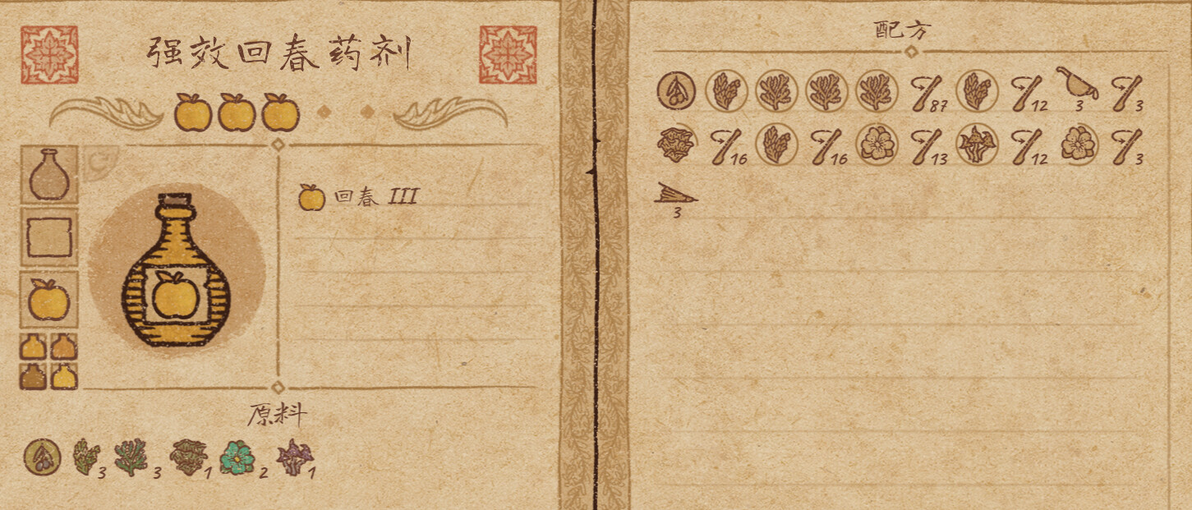 强效回春药剂
回春 III
原料
3 3 1 2 1
配方
87 12 3 3
16 16 13 12 3
3